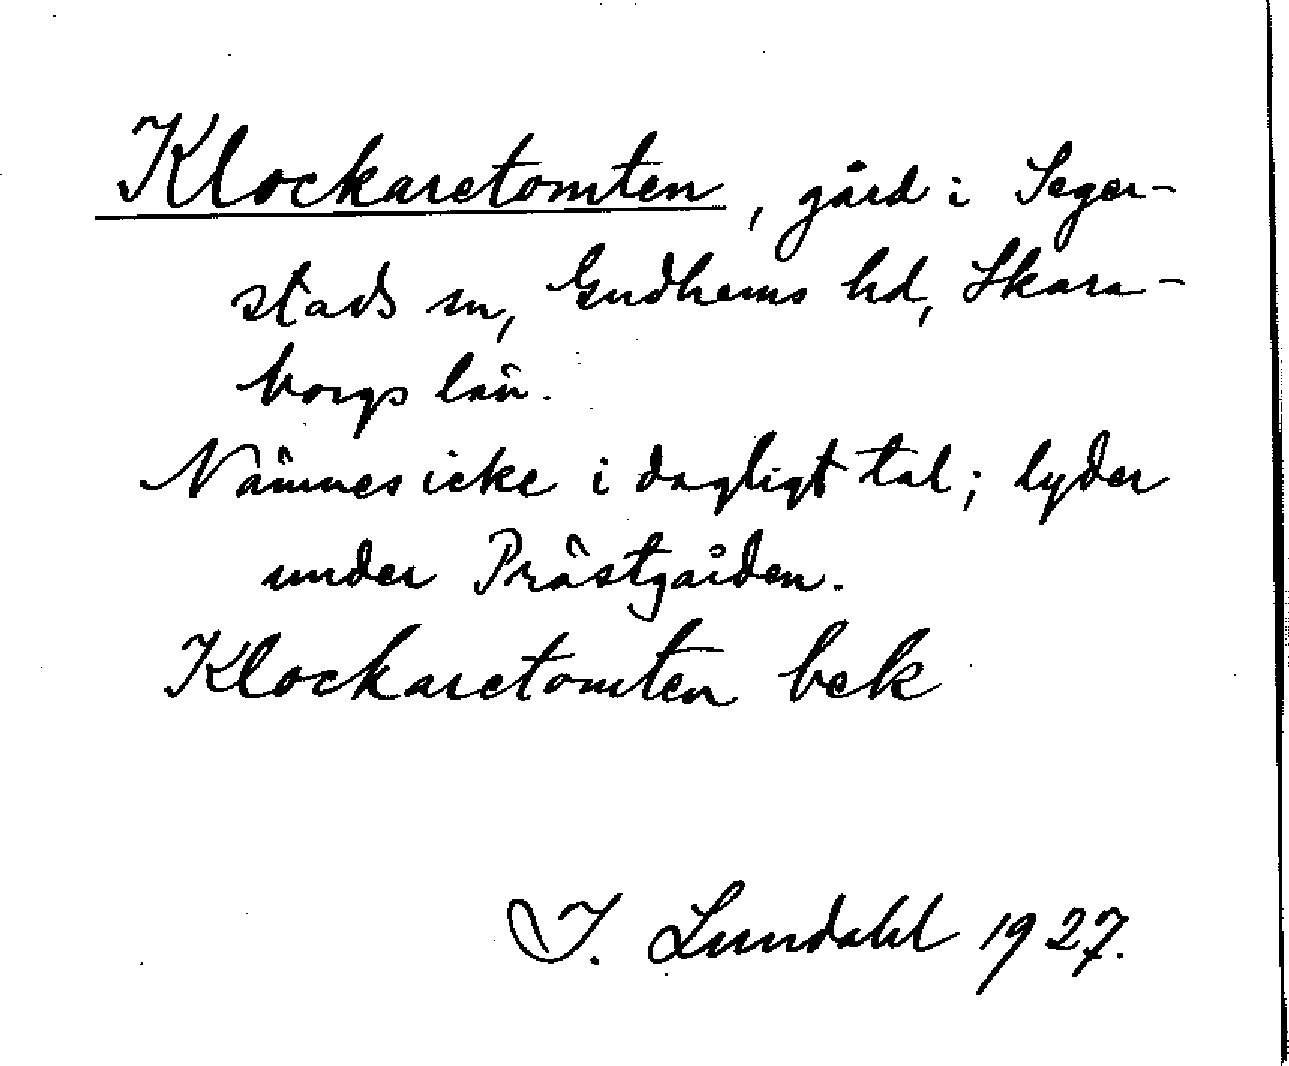 Klockaretomten, gård i Seger-
stads sn, Gudhems hd, Skara-
borgs län.
Nämnes icke i dagligt tal; lyder
under Prästgården.
Klockaretomten bek
I. Lundahl 1927.